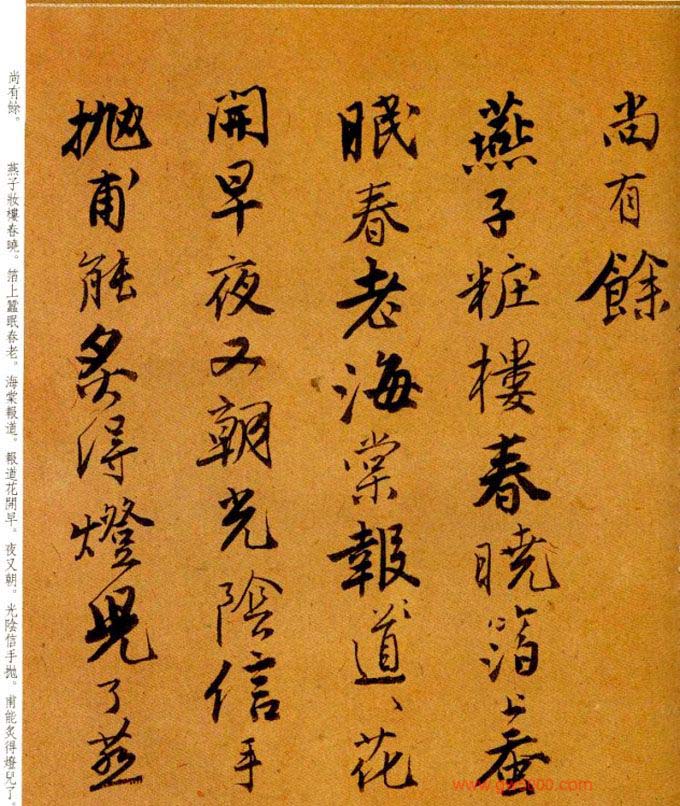 尚有餘
燕子粧樓春曉箔上蚕
眠春老海棠報〻道〻花
開早夜又朝光陰信手
抛甫能炙得燈兒了燕
尚有餘。 燕子妝樓春曉。箔上蠶眠春老。海棠報道。報道花開早。夜又朝。光陰信手抛。甫能炙得燈兒了。